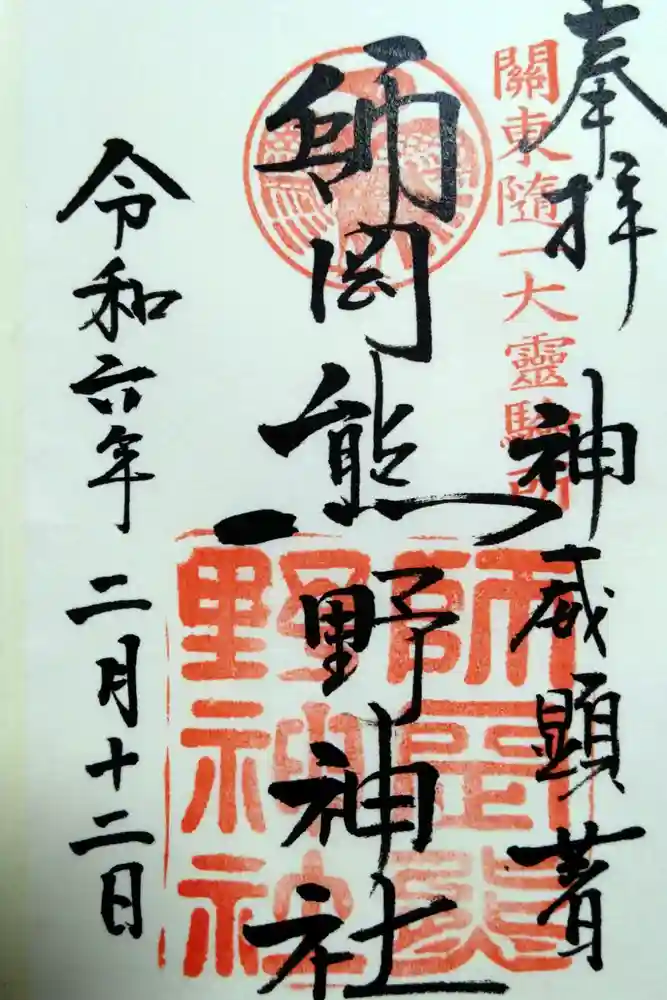 奉拝
關東隨一大靈驗所
神威顕著
師岡熊野神社
師岡熊野神社
令和六年二月十二日